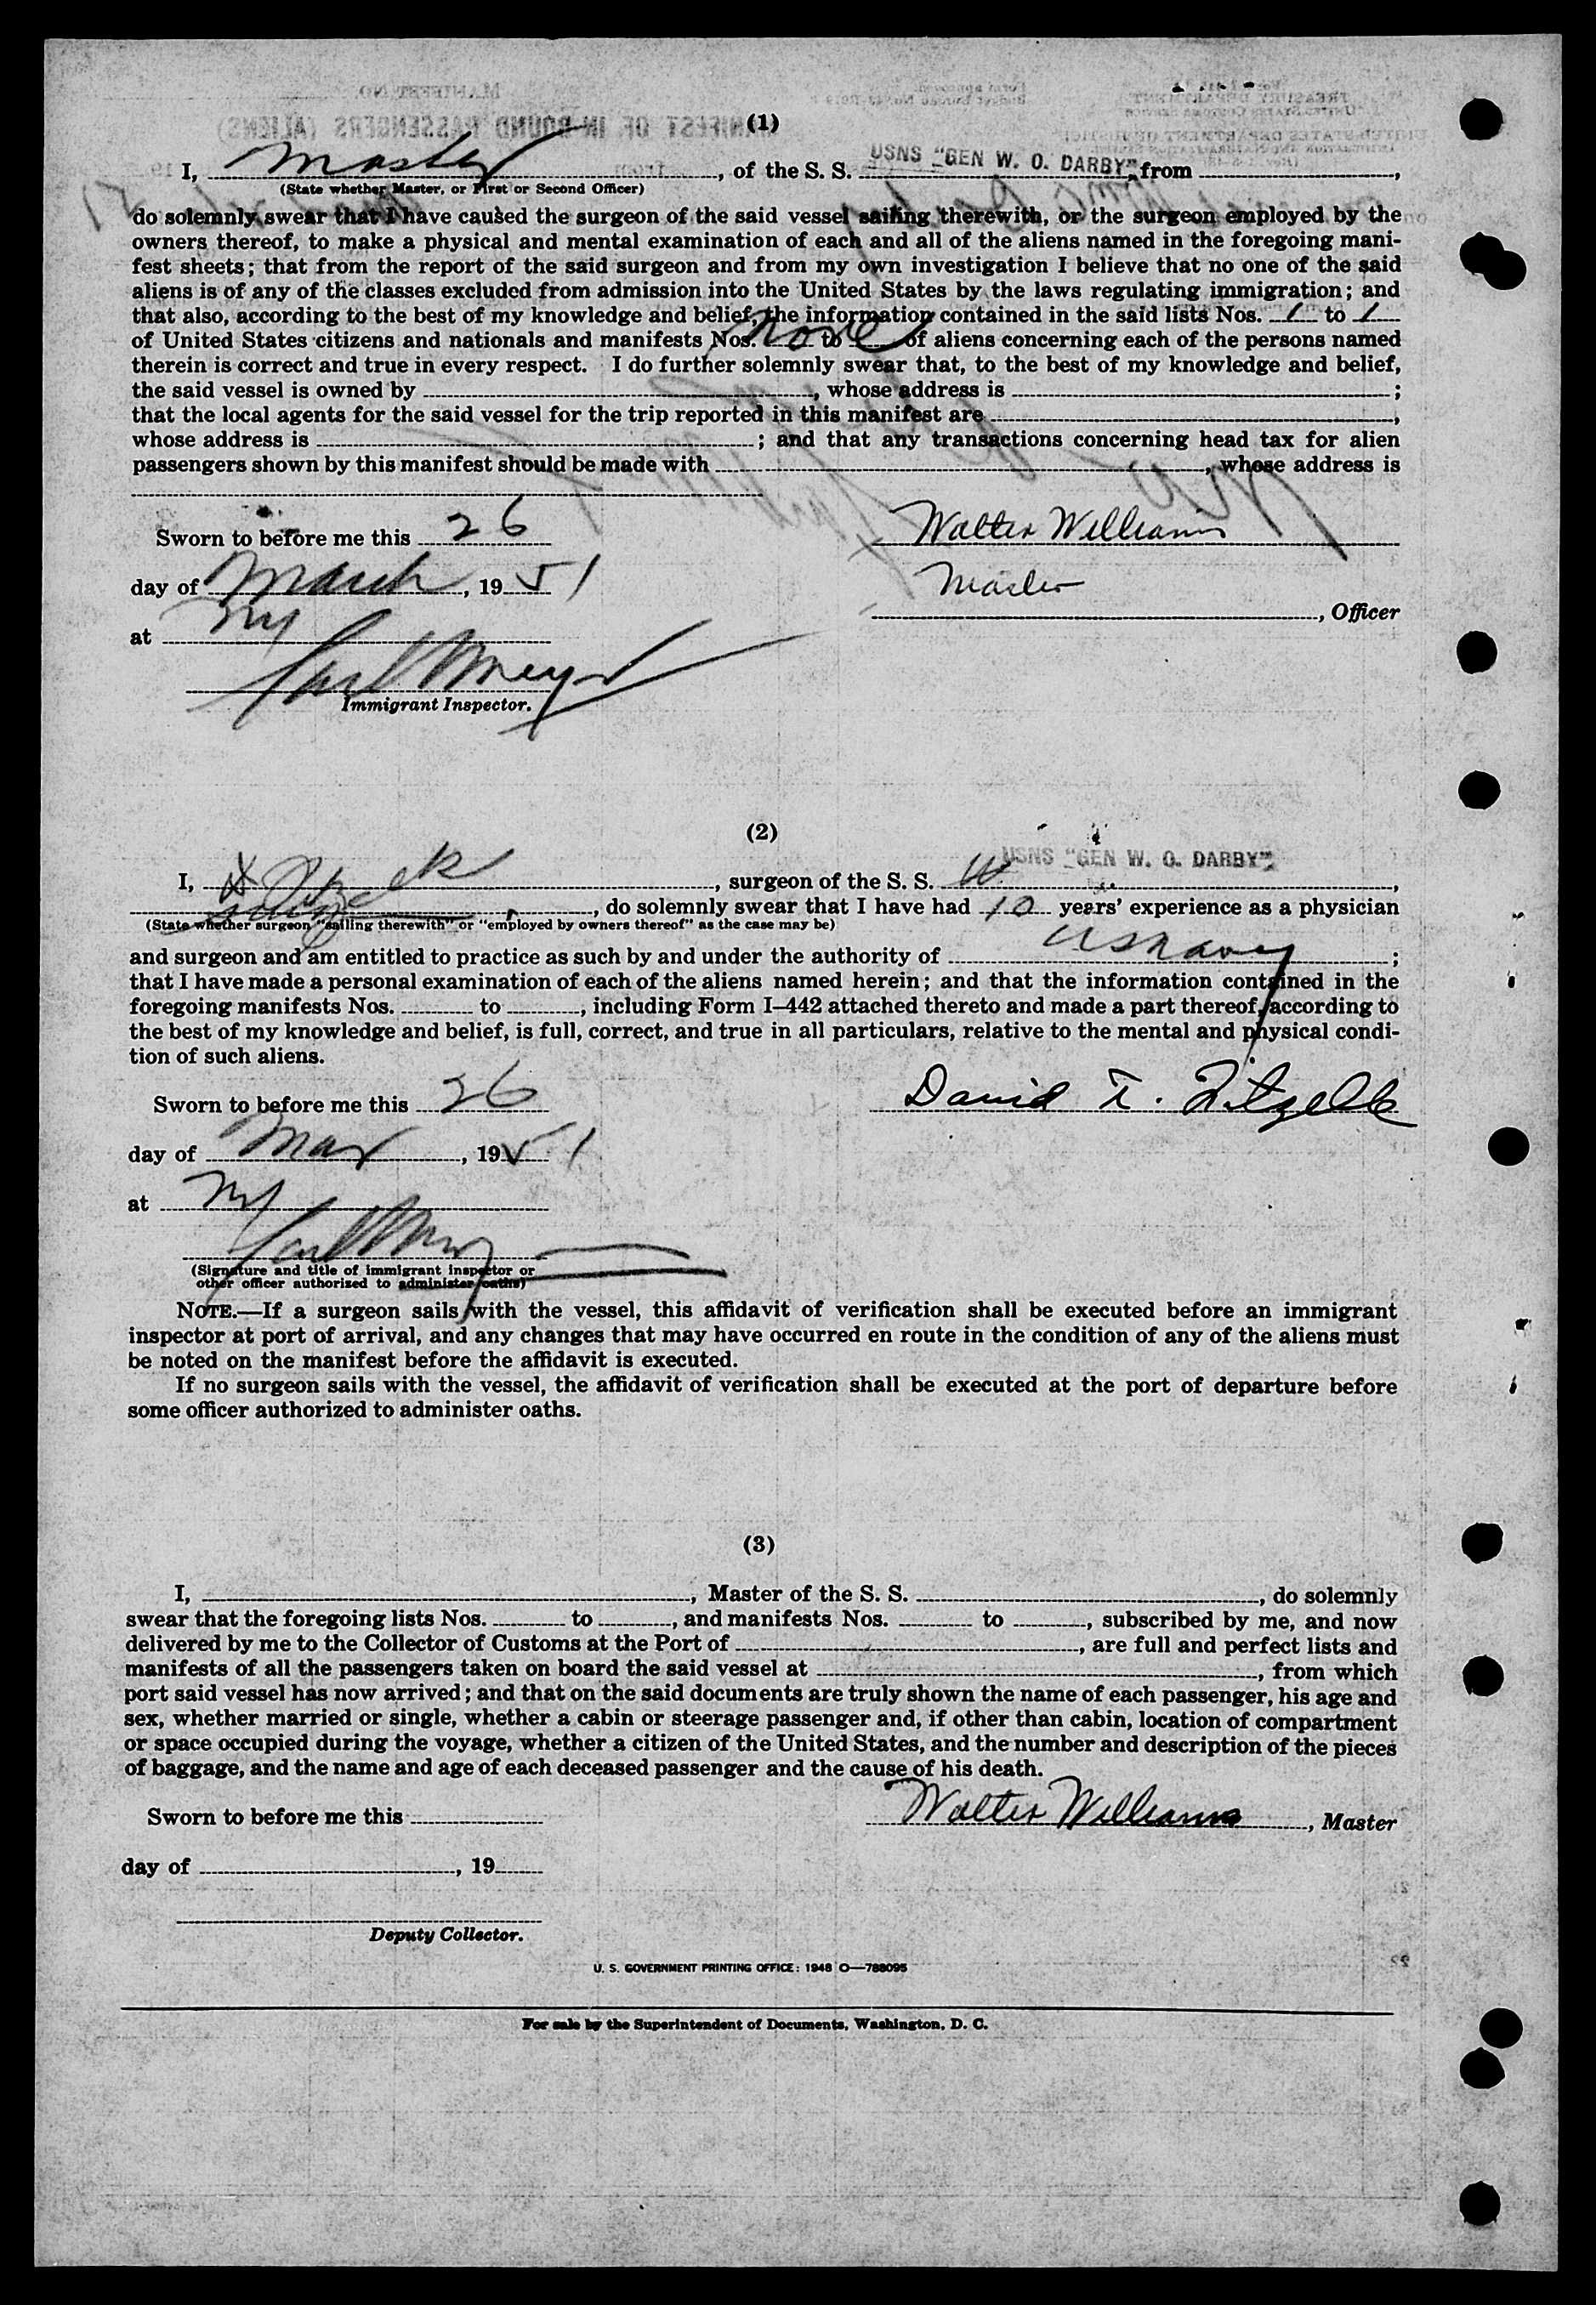 (1)
I, Master, of the S. S. USNS "GEN W. O. DARBY", from ,
(State whether Master, or First or Second Officer)
do solemnly swear that I have caused the surgeon of the said vessel sailing therewith, or the surgeon employed by the
owners thereof, to make a physical and mental examination of each and all of the aliens named in the foregoing mani-
fest sheets; that from the report of the said surgeon and from my own investigation I believe that no one of the said
aliens is of any of the classes excluded from admission into the United States by the laws regulating immigration; and
that also, according to the best of my knowledge and belief, the information contained in the said lists Nos. 1 to 1
of United States citizens and nationals and manifests Nos. none to of aliens concerning each of the persons named
therein is correct and true in every respect. I do further solemnly swear that, to the best of my knowledge and belief,
the said vessel is owned by , whose address is ;
that the local agents for the said vessel for the trip reported in this manifest are ,
whose address is ; and that any transactions concerning head tax for alien
passengers shown by this manifest should be made with , whose address is
Sworn to before me this 26 Walter Williams
day of March, 1951 Master
at NY , Officer
Carl Meyer
Immigrant Inspector.
(2)
USNS "GEN W. O. DARBY",
I, , surgeon of the S. S. ,
, do solemnly swear that I have had 10 years' experience as a physician
(State whether surgeon "sailing therewith" or "employed by owners thereof" as the case may be)
and surgeon and am entitled to practice as such by and under the authority of US Navy ;
that I have made a personal examination of each of the aliens named herein; and that the information contained in the
foregoing manifests Nos. to , including Form I–442 attached thereto and made a part thereof, according to
the best of my knowledge and belief, is full, correct, and true in all particulars, relative to the mental and physical condi-
tion of such aliens.
Sworn to before me this 26 David T.
day of Mar, 1951
at NY
Carl Meyer
(Signature and title of immigrant inspector or
other officer authorized to administer oaths)
NOTE.—If a surgeon sails with the vessel, this affidavit of verification shall be executed before an immigrant
inspector at port of arrival, and any changes that may have occurred en route in the condition of any of the aliens must
be noted on the manifest before the affidavit is executed.
If no surgeon sails with the vessel, the affidavit of verification shall be executed at the port of departure before
some officer authorized to administer oaths.
(3)
I, , Master of the S. S. , do solemnly
swear that the foregoing lists Nos. to , and manifests Nos. to , subscribed by me, and now
delivered by me to the Collector of Customs at the Port of , are full and perfect lists and
manifests of all the passengers taken on board the said vessel at , from which
port said vessel has now arrived; and that on the said documents are truly shown the name of each passenger, his age and
sex, whether married or single, whether a cabin or steerage passenger and, if other than cabin, location of compartment
or space occupied during the voyage, whether a citizen of the United States, and the number and description of the pieces
of baggage, and the name and age of each deceased passenger and the cause of his death.
Sworn to before me this Walter Williams, Master
day of , 19
Deputy Collector.
U. S. GOVERNMENT PRINTING OFFICE: 1948 O—788095
For sale by the Superintendent of Documents, Washington, D. C.